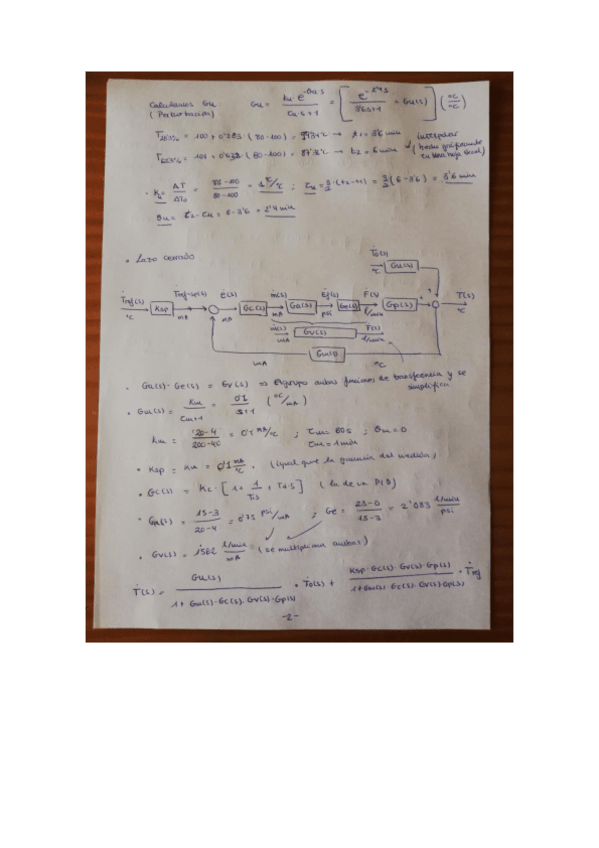 Calculamos Gu: Gu = Ku·e^-θu·s / τu·s+1 = [ e^-2'4s / 3'6s+1 = Gu(s) ] (ºC/ºC)
(Perturbación)
T28'3% = 100 + 0'283·(80-100) = ºC → t1 = 3'6 min
T63'2% = 100 + 0'632·(80-100) = ºC → t2 = 6 min
Interpolar
· Ku = ΔT/ΔT0 = 80-100/80-100 = 1 ºC/ºC ; τu = 3/2·(t2-t1) = 3/2(6-3'6) = 3'6 min
θu = t2-τu = 6-3'6 = 2'4 min
• Lazo cerrado
T0(s) ºC Gu(s)
Tref(s) ºC Ksp Tref-sp(s) mA E(s) mA Gc(s) m(s) mA Ga(s) Ef(s) psi Ge(s) F(s) l/min Gp(s) + + T(s) ºC
m(s) mA Gv(s) F(s) l/min
Gm(s)
mA ºC
· Ga(s)·Ge(s) = Gv(s) ⇒ Agrupo ambas funciones de transferencia y se simplifica
• Gm(s) = Km/τm+1 = 0'1/s+1
Km = 20-4/200-40 = 0'1 mA/ºC ; τm = 60s ; θm = 0
τm = 1 min
• Ksp = Km = 0'1 mA/ºC . (igual que la ganancia del medidor)
• Gc(s) = Kc·[1 + 1/Tis + Td·S] (la de un PID)
• Ga(s) = 15-3/20-4 = 0'75 psi/mA ; Ge = 25-0/15-3 = 2'083 l/min/psi
• Gv(s) = 1'562 l/min/mA (se multiplican ambas)
T(s) = Gu(s) / 1+Gm(s)·Gc(s)·Gv(s)·Gp(s) · T0(s) + Ksp·Gc(s)·Gv(s)·Gp(s) / 1+Gm(s)·Gc(s)·Gv(s)·Gp(s) · Tref
-2-